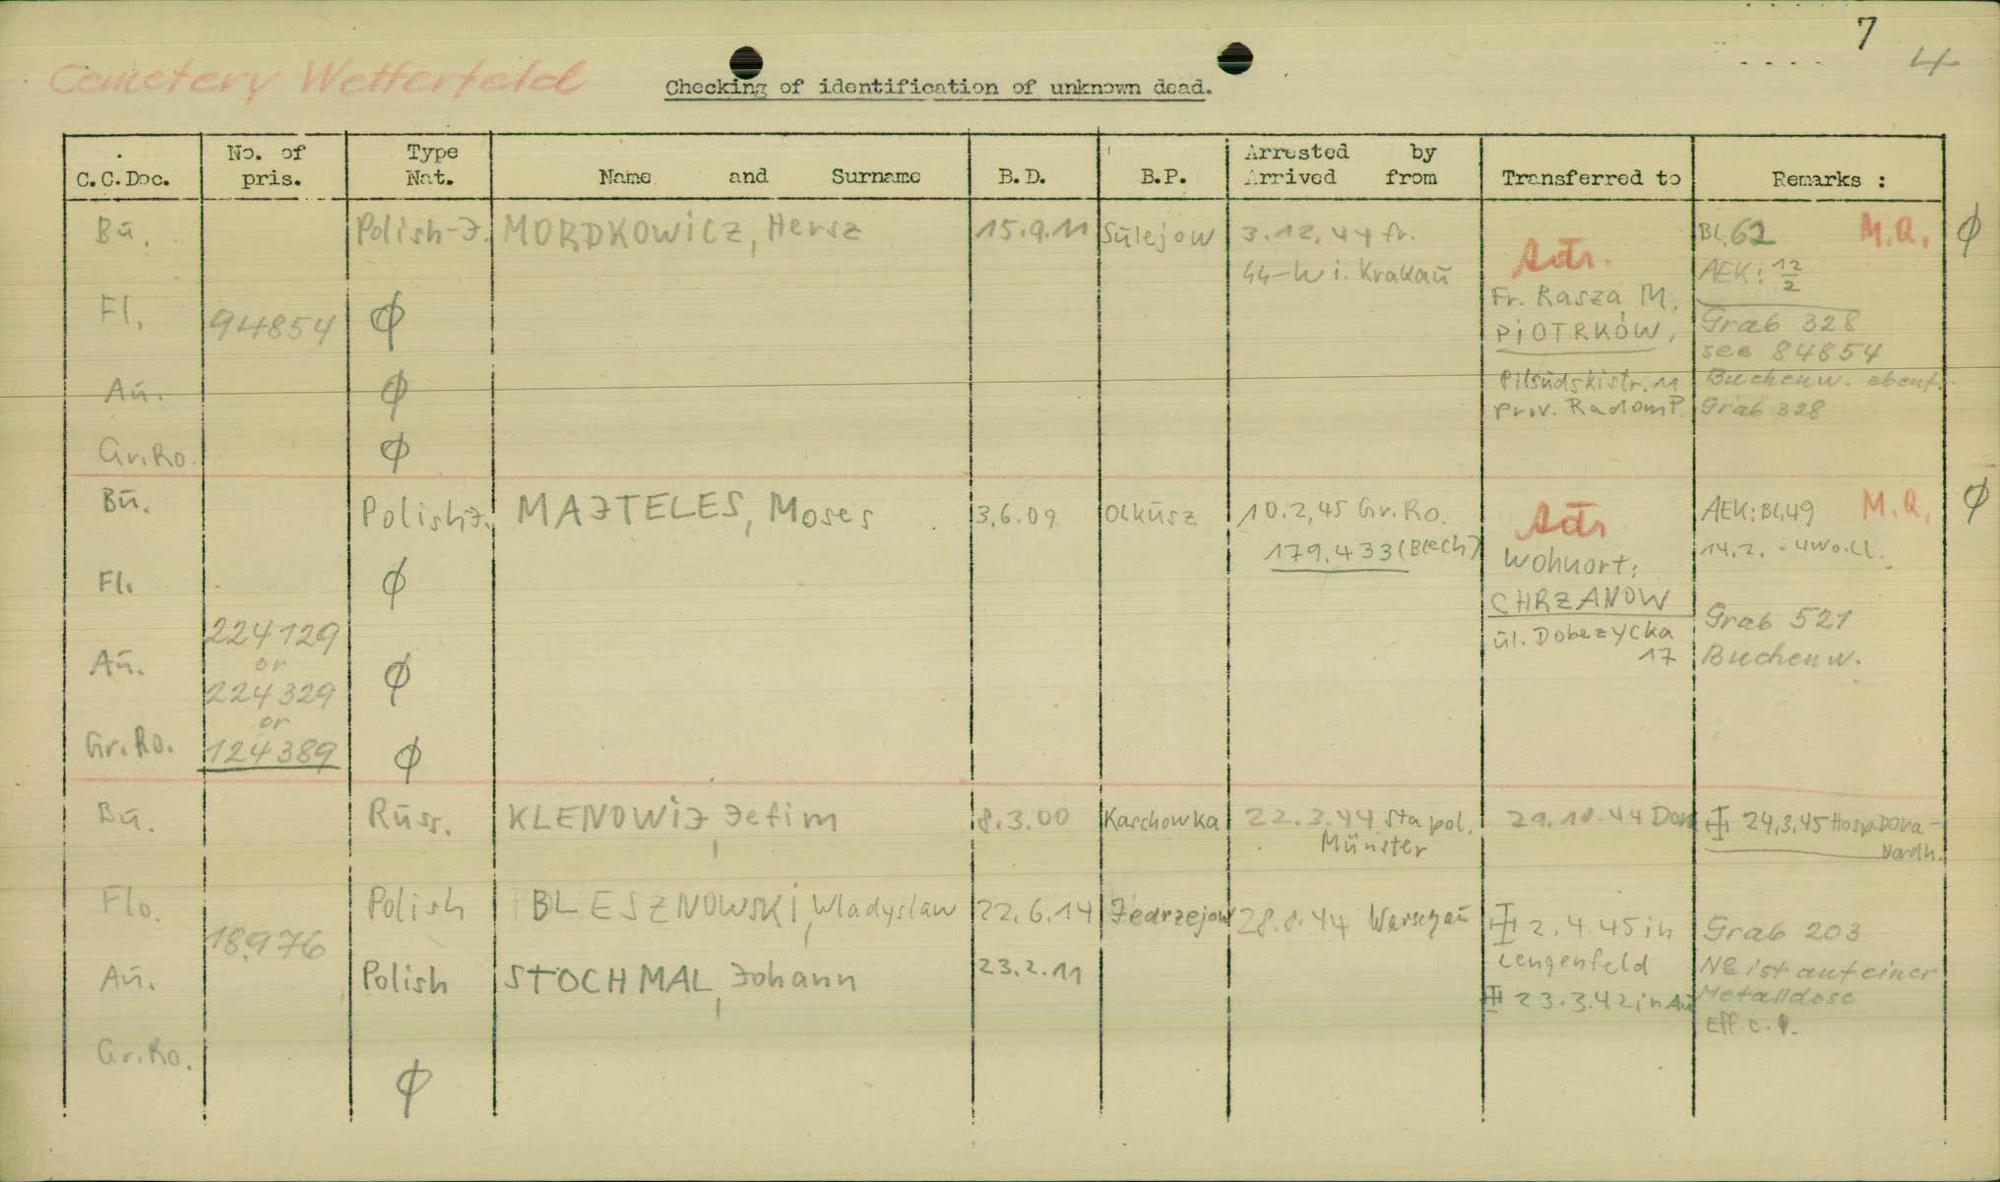 7
4
Cemetery Wetterfeld
Checking of identification of unknown dead.
C.C.Doc. No. of pris. Type Nat. Name and Surname B.D. B.P. Arrested by Arrived from Transferred to Remarks :
Bū. Polish-J. MORDKOWICZ, Hersz 15.9.11 Sūlejow 3.12.44 fr. Adr. Bl.62 M.Q. ϕ
44-W i. Krakaū AEK: 12/2
Fl. 94854 ϕ Fr. Rasza M. Grab 328
PIOTRKÓW, see 84854
Aū. ϕ Pilsūdskistr. 11 Buchenw. ebenf.
prov. Radom P. Grab 328
Gr.Ro. ϕ
Bū. Polish J. MAJTELES, Moses 3.6.09 Olkūsz 10.2.45 Gr.Ro. Adr AEK: Bl.49 M.Q. ϕ
179.433 (Blech) Wohnort: 14.2.
Fl. ϕ CHRZANOW
224129 ūl. Dobezycka Grab 521
or 17 Buchenw.
Aū. 224329 ϕ
or
Gr.Ro. 124389 ϕ
Bū. Rūss. KLENOWIJ, Jefim 8.3.00 Karchowka 22.3.44 Sta pol. 29.10.44 Dora 24.3.45 Hosp. Dora-
Münster Nordh.
Flo. Polish BLESZNOWSKI, Wladyslaw 22.6.14 Jedrzejow 28.8.44 Warschaū 2.4.45 in Grab 203
18976 Lengenfeld No ist auf einer
Aū. Polish STOCHMAL, Johann 23.2.11 23.3.42 in Aū Metalldose
Eff. c.
Gr.Ro. ϕ